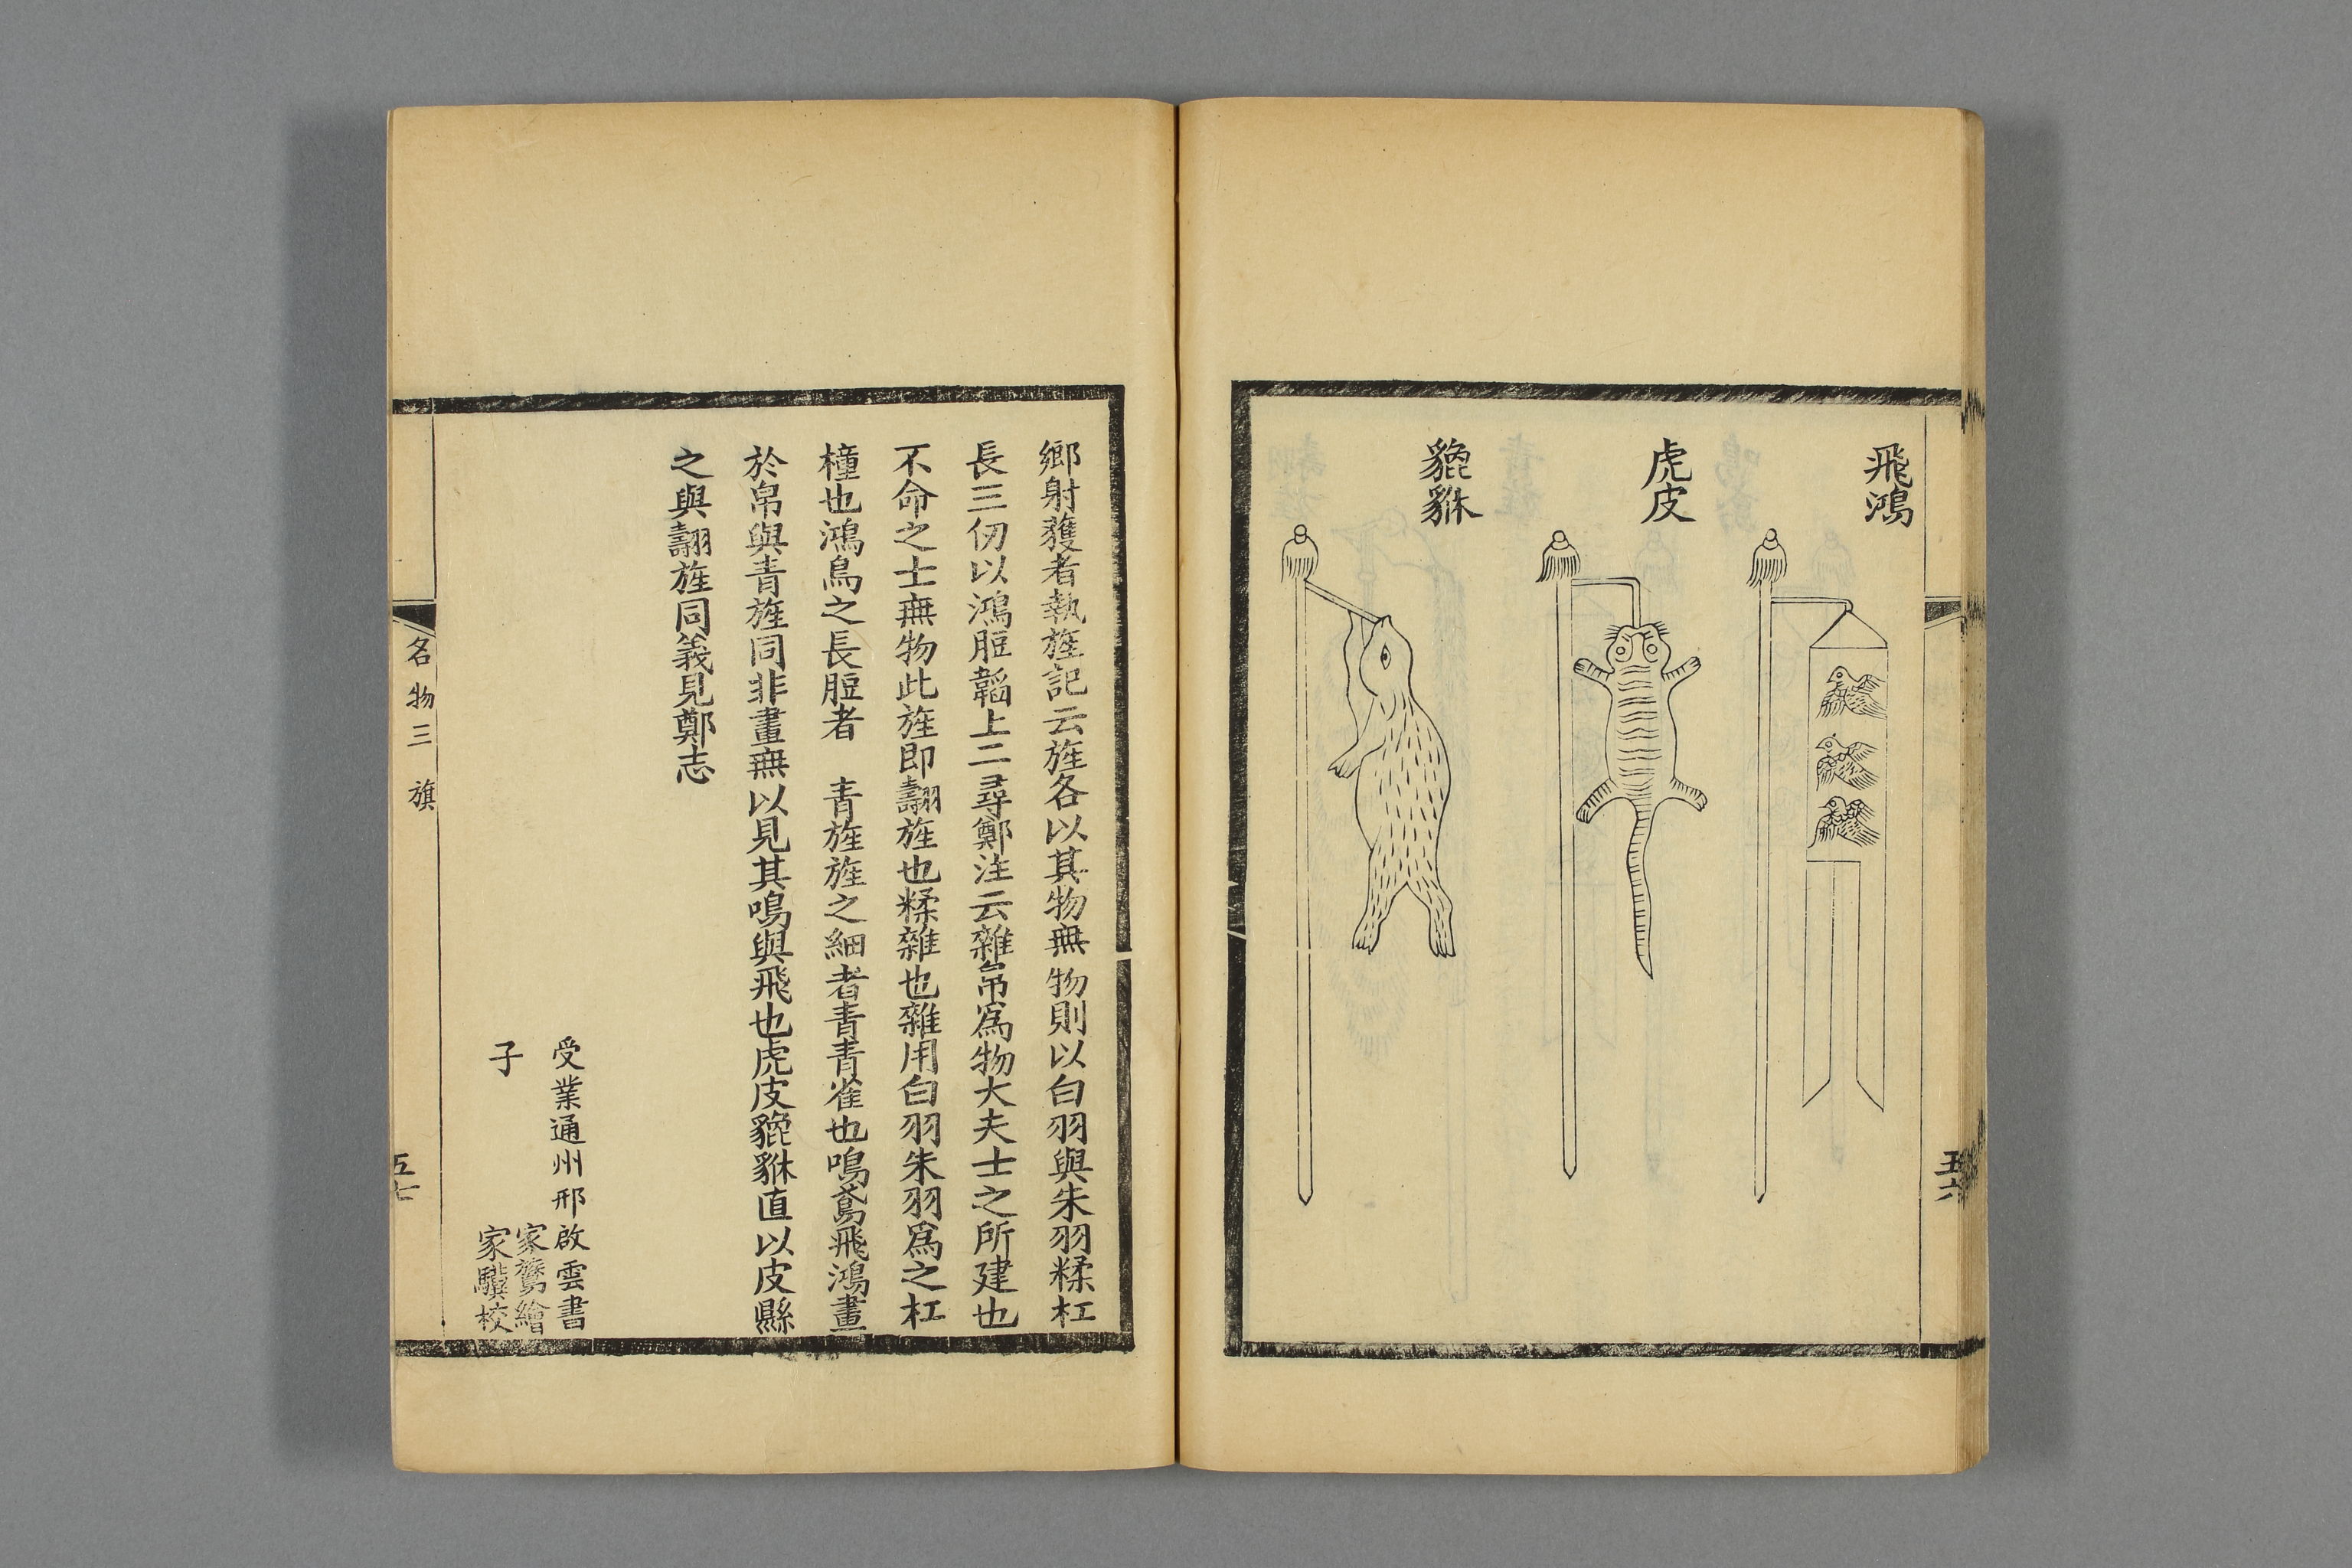 飛鴻
虎皮
貔貅
五六
鄉射獲者執旌記云旌各以其物無物則以白羽與朱羽糅杠
長三仞以鴻脰韜上二尋鄭注云雜帛爲物大夫士之所建也
不命之士無物此旌即翿旌也糅雜也雜用白羽朱羽爲之杠
橦也鴻鳥之長脰者　青旌旌之細者青青雀也鳴鳶飛鴻畫
於帛與青旌同非畫無以見其鳴與飛也虎皮貔貅直以皮縣
之與翿旌同義見鄭志
受業通州邢啟雲書
子
家鷟繪
家驥校
名物三　旗
五七